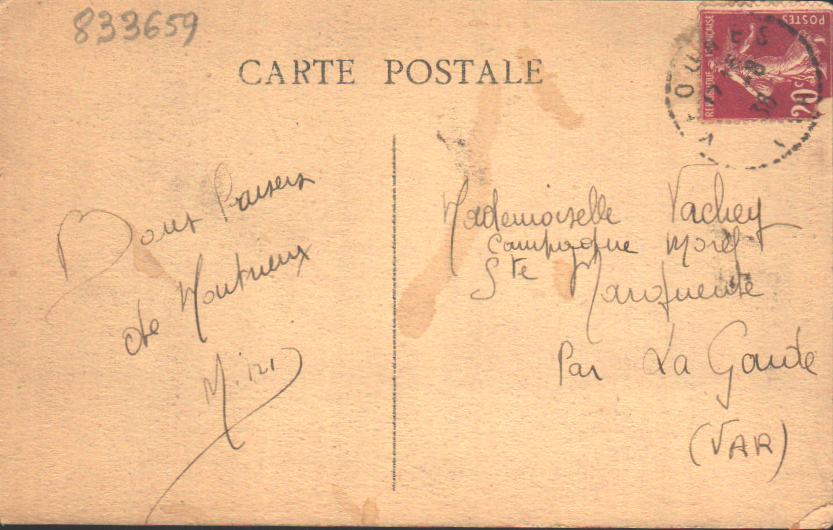 833659
CARTE POSTALE
POSTES
REPUBLIQUE FRANCAISE
20c
38
Bons baisers
de Montrieux
Mademoiselle Vachey
Campagne Morel
Ste Marguerite
Par La Garde
(VAR)